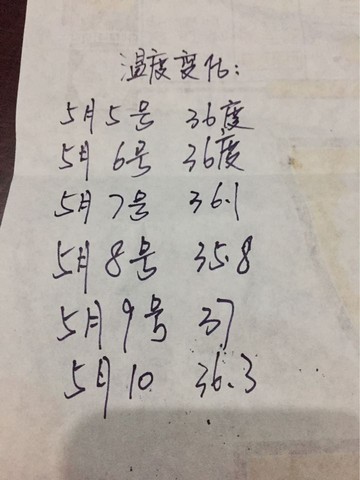 温度变化:
5月5号 36度
5月6号 36度
5月7号 36.1
5月8号 35.8
5月9号 37
5月10 36.3